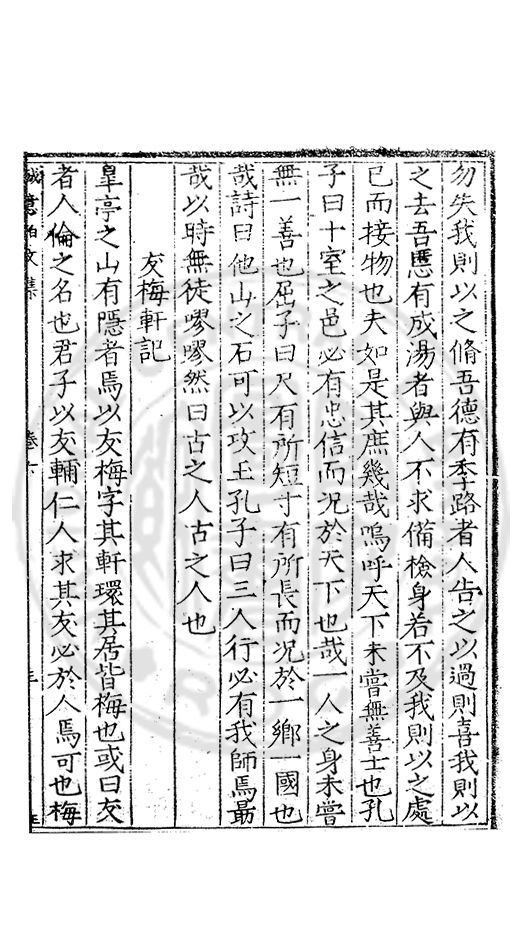 勿失我則以之脩吾德有季路者人告之以過則喜我則以
之去吾慝有成湯者與人不求備檢身若不及我則以之處
已而接物也夫如是其庶幾哉嗚呼天下未嘗無善士也孔
子曰十室之邑必有忠信而况於天下也哉一人之身未嘗
無一善也屈子曰尺有所短寸有所長而况於一鄉一國也
哉詩曰他山之石可以攻玉孔子曰三人行必有我師焉曷
哉以時無徒嘐嘐然曰古之人古之人也
友梅軒記
臯亭之山有隱者焉以友梅字其軒環其居皆梅也或曰友
者人倫之名也君子以友輔仁人求其友必於人焉可也梅
誠意伯文集 卷六